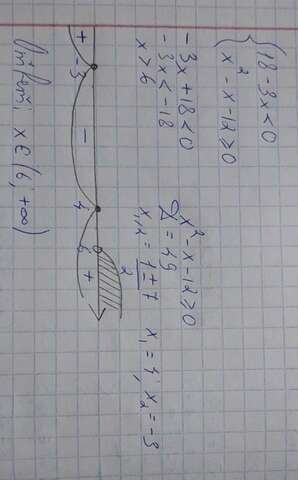 { 18 - 3x < 0
x² - x - 12 ≥ 0
- 3x + 18 < 0
- 3x < - 18
x > 6
x² - x - 12 ≥ 0
D = 49
x₁,₂ = (1 ± 7) / 2 x₁ = 4; x₂ = -3
+ -3 - 4 6 +
x ∈ (6; +∞)